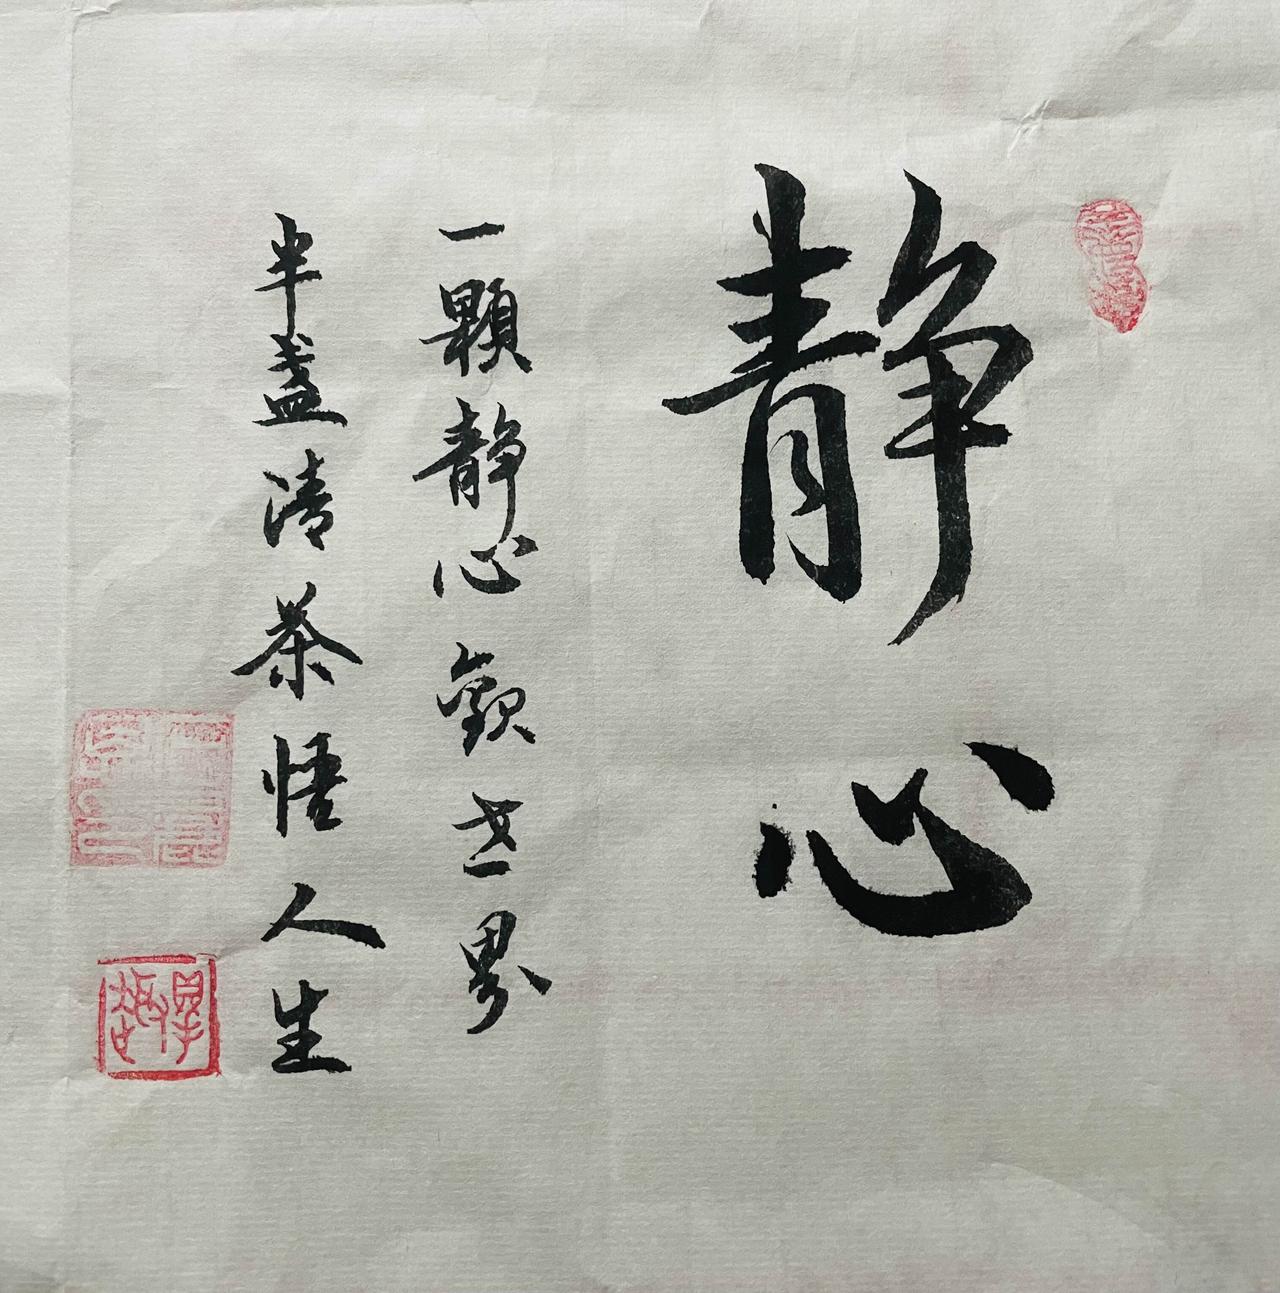 静心
一顆静心觀世界
半盏清茶悟人生